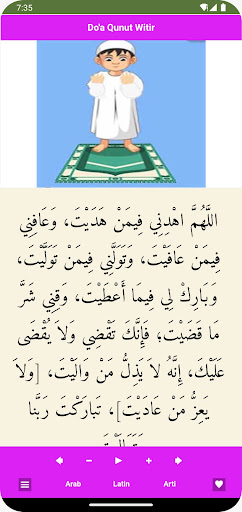 7:35
Do'a Qunut Witir
اللَّهُمَّ اهْدِنِي فِيمَنْ هَدَيْتَ، وَعَافِنِي
فِيمَنْ عَافَيْتَ، وَتَوَلَّنِي فِيمَنْ تَوَلَّيْتَ،
وَبَارِكْ لِي فِيمَا أَعْطَيْتَ، وَقِنِي شَرَّ
مَا قَضَيْتَ؛ فَإِنَّكَ تَقْضِي وَلَا يُقْضَى
عَلَيْكَ، إِنَّهُ لَا يَذِلُّ مَنْ وَالَيْتَ، [وَلَا
يَعِزُّ مَنْ عَادَيْتَ]، تَبَارَكْتَ رَبَّنَا
Arab Latin Arti